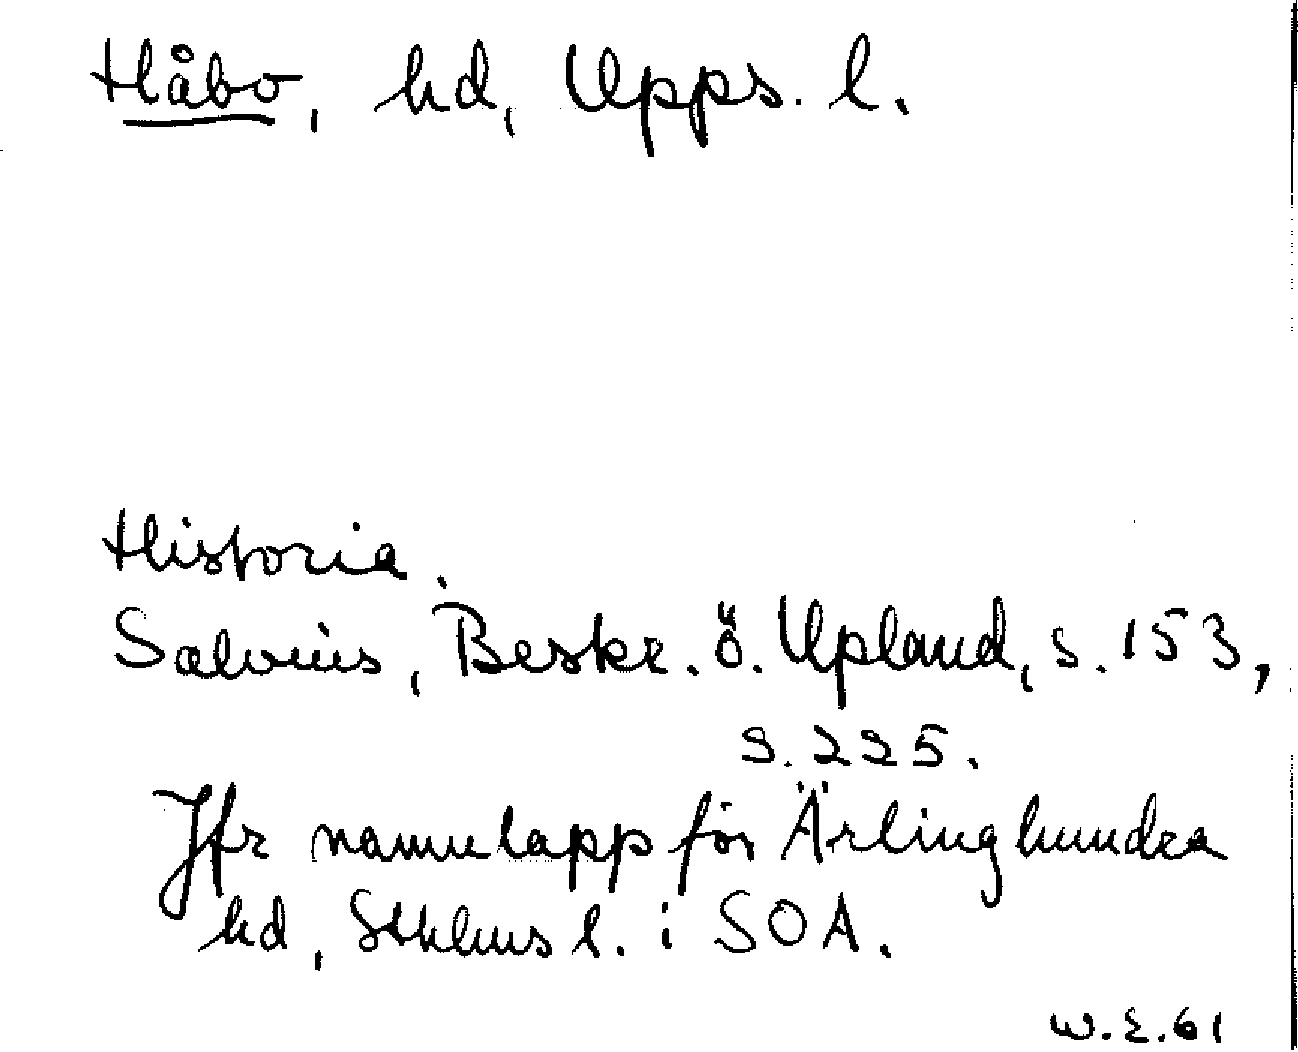 Håbo, hd, Upps. l.
Historia.
Salvius, Beskr. ö. Upland, s. 153,
s. 225.
Jfr namnlapp för Ärlinghundra
hd, Sthlms l. i SOA.
W.E.61